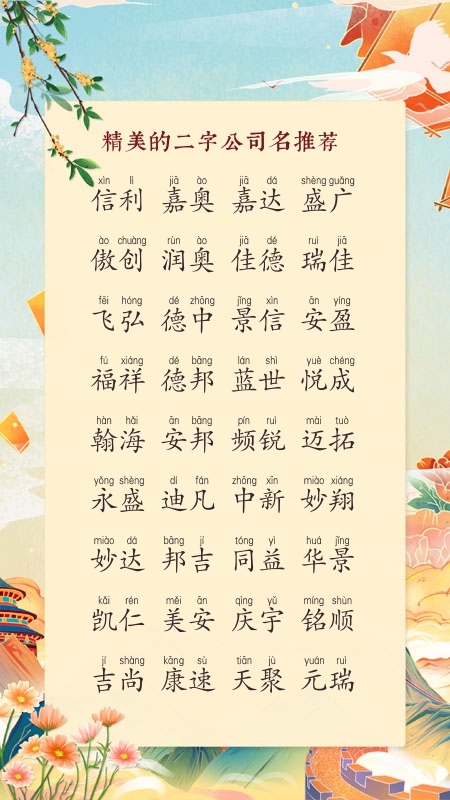 精美的二字公司名推荐
xìn lì jiā ào jiā dá shèng guǎng
信利 嘉奥 嘉达 盛广
ào chuàng rùn ào jiā dé ruì jiā
傲创 润奥 佳德 瑞佳
fēi hóng dé zhōng jǐng xìn ān yíng
飞弘 德中 景信 安盈
fú xiáng dé bāng lán shì yuè chéng
福祥 德邦 蓝世 悦成
hàn hǎi ān bāng pín ruì mài tuò
翰海 安邦 频锐 迈拓
yǒng shèng dí fán zhōng xīn miào xiáng
永盛 迪凡 中新 妙翔
miào dá bāng jí tóng yì huá jǐng
妙达 邦吉 同益 华景
kǎi rén měi ān qìng yǔ míng shùn
凯仁 美安 庆宇 铭顺
jí shàng kāng sù tiān jù yuán ruì
吉尚 康速 天聚 元瑞